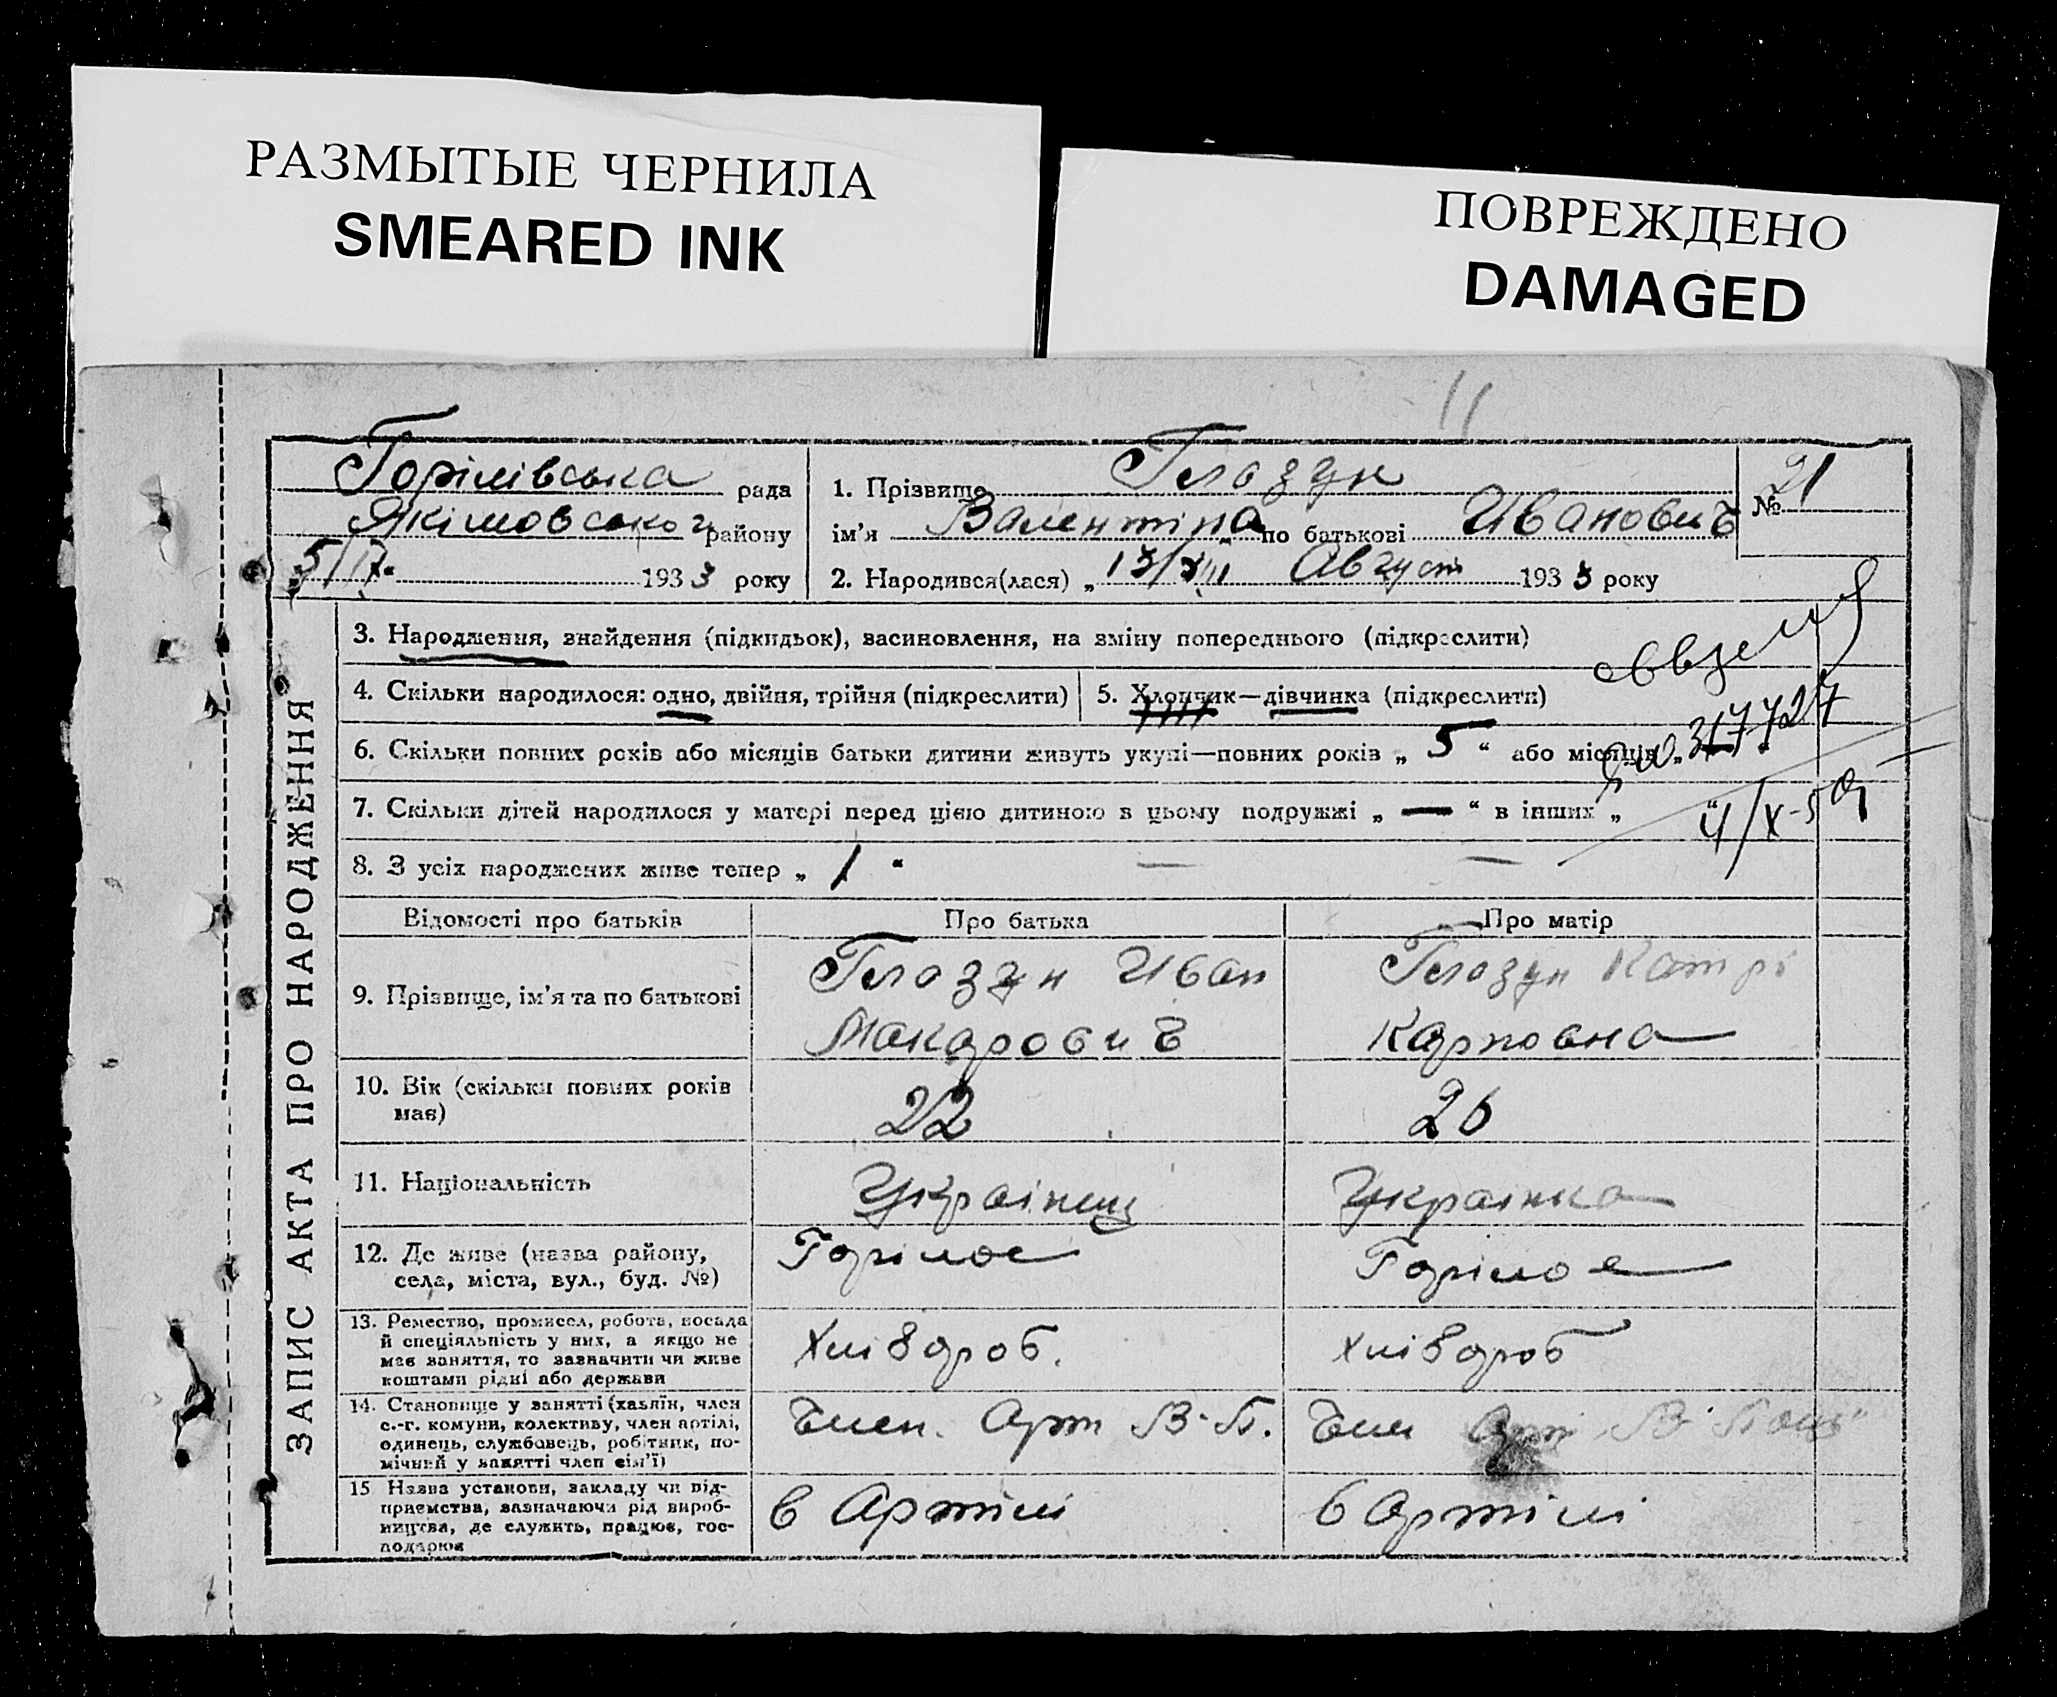 РАЗМЫТЫЕ ЧЕРНИЛА
SMEARED INK
ПОВРЕЖДЕНО
DAMAGED
11
Горілівська рада
Якімовського району
5/IX 1933 року
1. Прізвище Глазун
ім'я Валентина по батькові Иванович
№ 21
2. Народився(лася) „13/VIII Август 1933 року
ЗАПИС АКТА ПРО НАРОДЖЕННЯ
3. Народження, знайдення (підкидьок), засиновлення, на зміну попереднього (підкреслити)
4. Скільки народилося: одно, двійня, трійня (підкреслити)
5. Хлопчик—дівчинка (підкреслити)
6. Скільки повних років або місяців батьки дитини живуть укупі—повних років „ 5 “ або місяців „
317727
7. Скільки дітей народилося у матері перед цією дитиною в цьому подружжі „ — “ в інших „ “
4/X-
8. З усіх народжених живе тепер „ 1 “ — —
Відомості про батьків Про батька Про матір
9. Прізвище, ім'я та по батькові
Глазун Иван
Макарович
Глазун Катрі
Карповна
10. Вік (скільки повних років
має)
22
26
11. Національність
Українец
Українка
12. Де живе (назва району,
села, міста, вул., буд. №)
Горілое
Горілое
13. Ремество, промисел, робота, посада
й спеціяльність у них, а якщо не
має заняття, то зазначити чи живе
коштами рідні або держави
Хлібороб.
Хлібороб
14. Становище у занятті (хазяїн, член
с.-г. комуни, колективу, член артілі,
одинець, службовець, робітник, по-
мічний у занятті член сім'ї)
Член. Арт В-П.
Член Арт В-
15 Назва установи, закладу чи під-
приємства, зазначаючи рід вироб-
ництва, де служить, працює, гос-
подарює
в Артілі
в артілі